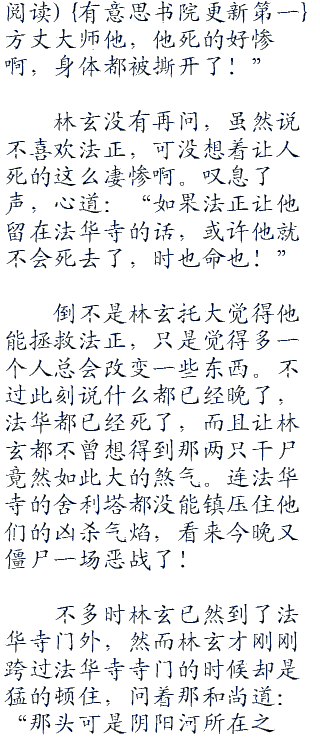 阅读) {有意思书院更新第一}
方丈大师他，他死的好惨
啊，身体都被撕开了！”
林玄没有再问，虽然说
不喜欢法正，可没想着让人
死的这么凄惨啊。叹息了
声，心道：“如果法正让他
留在法华寺的话，或许他就
不会死去了，时也命也！”
倒不是林玄托大觉得他
能拯救法正，只是觉得多一
个人总会改变一些东西。不
过此刻说什么都已经晚了，
法华都已经死了，而且让林
玄都不曾想得到那两只干尸
竟然如此大的煞气。连法华
寺的舍利塔都没能镇压住他
们的凶杀气焰，看来今晚又
僵尸一场恶战了！
不多时林玄已然到了法
华寺门外，然而林玄才刚刚
跨过法华寺寺门的时候却是
猛的顿住，问着那和尚道：
“那头可是阴阳河所在之